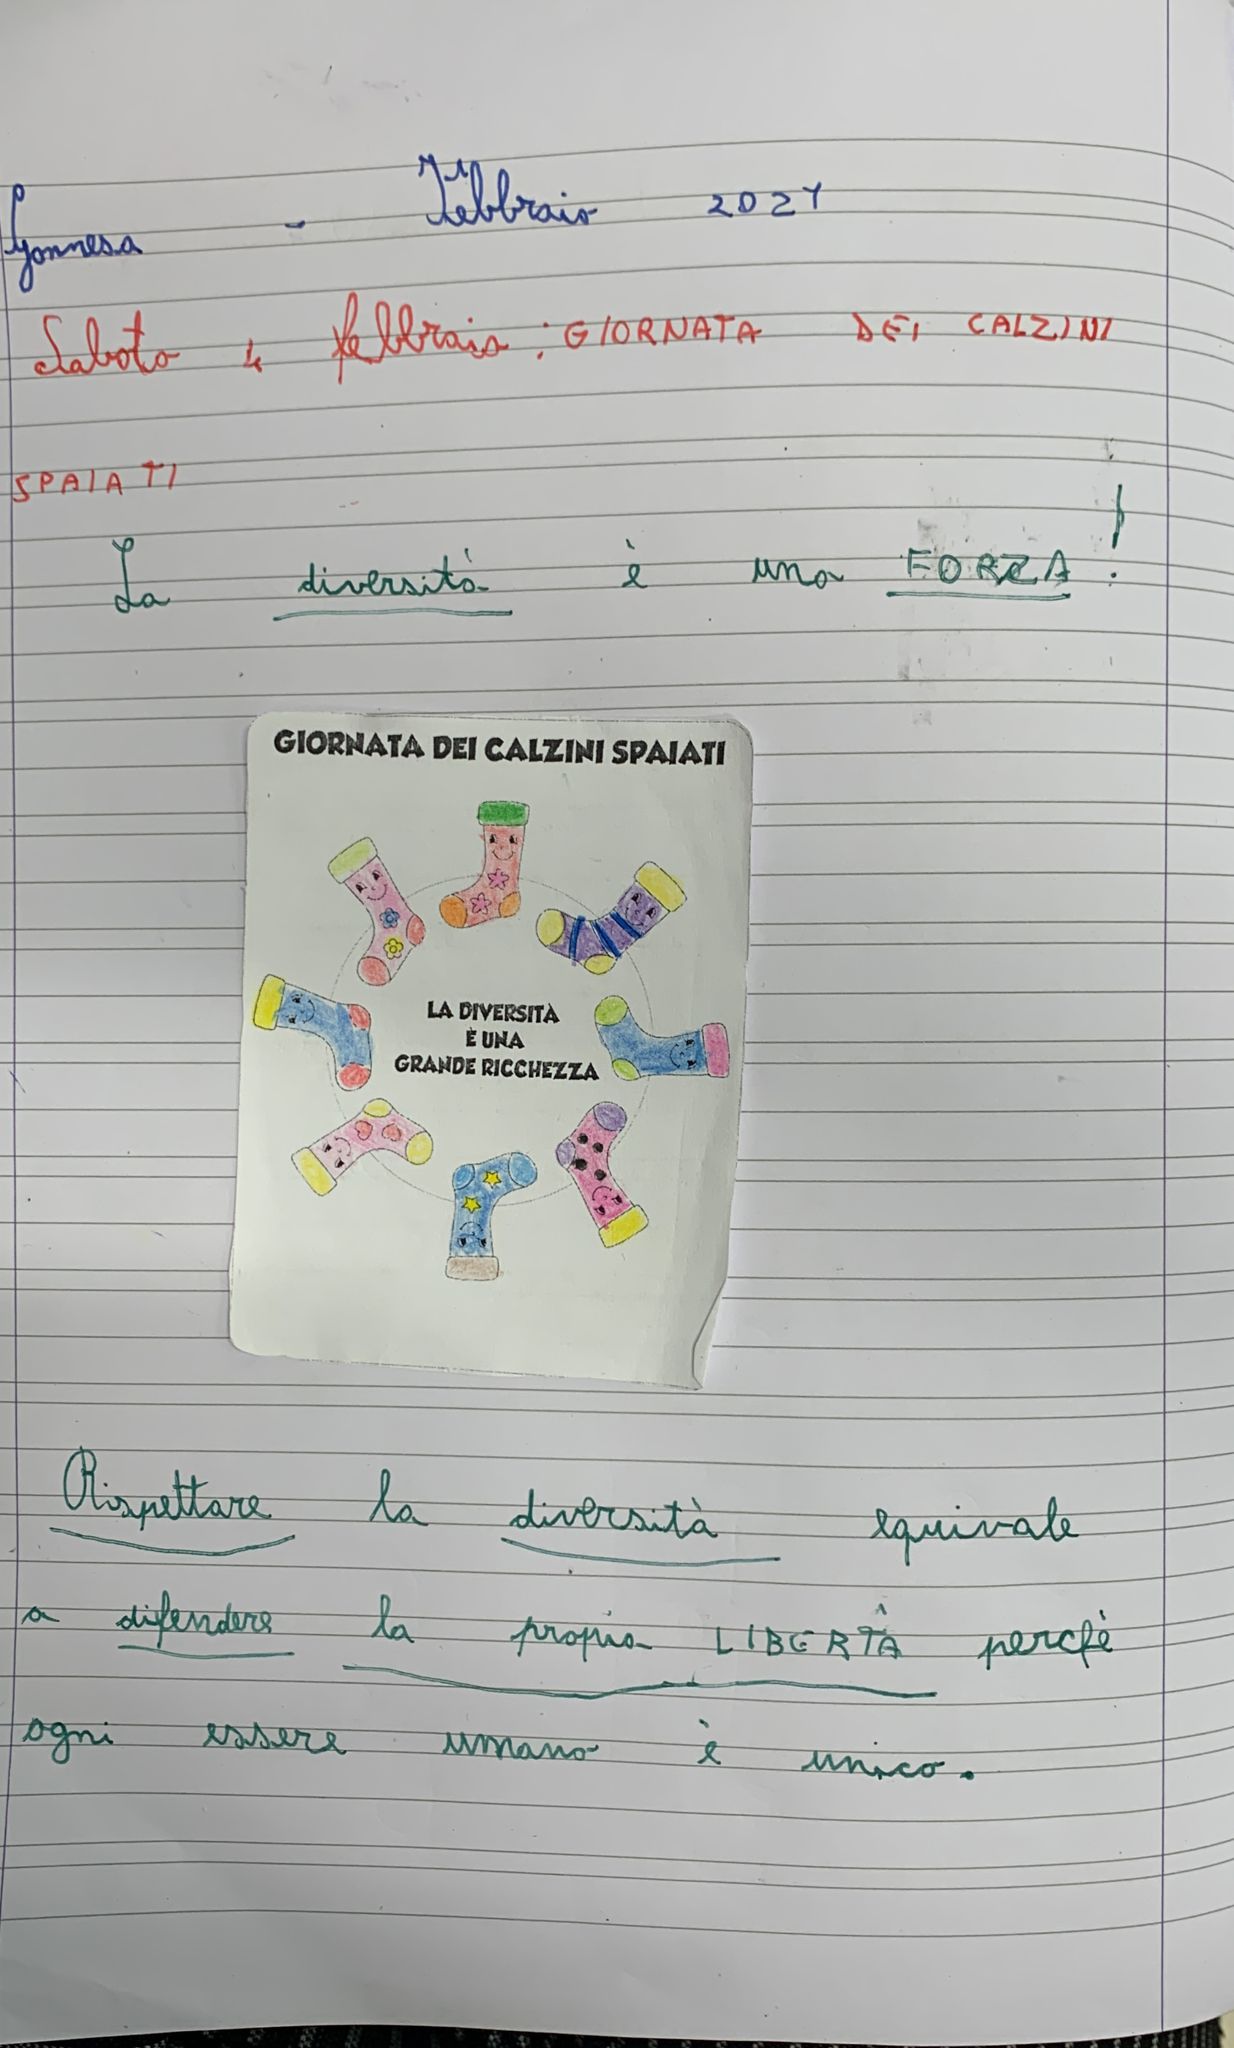 Gonnesa - Febbraio 2021
Sabato 4 febbraio: GIORNATA DEI CALZINI
SPAIATI
La diversità è una FORZA!
GIORNATA DEI CALZINI SPAIATI
LA DIVERSITÀ
È UNA
GRANDE RICCHEZZA
Rispettare la diversità equivale
a difendere la propria LIBERTÀ perché
ogni essere umano è unico.